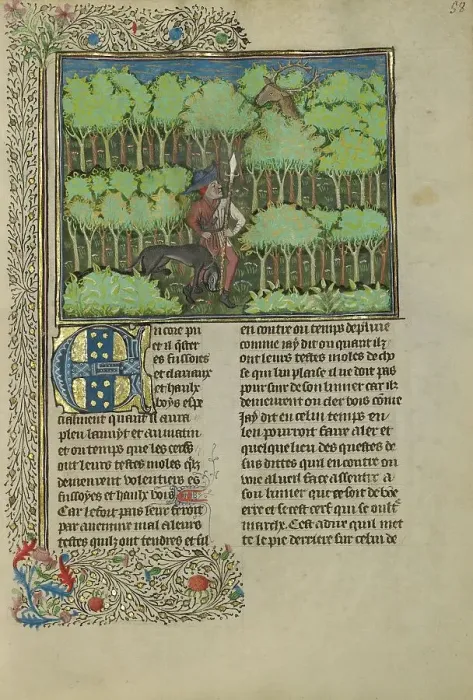 ncore puı
et il q̃ster
es fussoies
et clavaux
et haulx
boys espe
cialment quant il aura
pleu la nuyt et au matin
et ou temps que les cerfs
ont leurs testes moles q̃lz
demeurent volentiers es
fussoyes et haulx bois
Car le fort pais leur feroit
par aventure mal a leurs
testes quilz ont tendres et sil
en contre ou temps de pluie
comme jay dit ou quant ilz
ont leurs testes moles de chp
se qui lui plaise il ne doit pas
poursuir de son limier car ilz
demeurent en cler bois cõme
Jay dit en celui temps en
len pourront faire aler et
quelque lieu des questes de
sus dittes quil en contre ou
que a lueil face assentir a
son limier qui se soit de bõe
erre et se cest cerf qui se oult
marche. Cest a dire quil met
te le pie derriere sur celui de